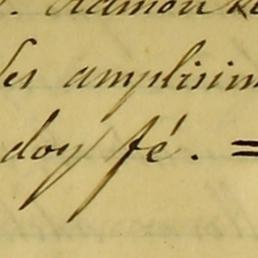 . Ramon
des amplisim
doy fé. =